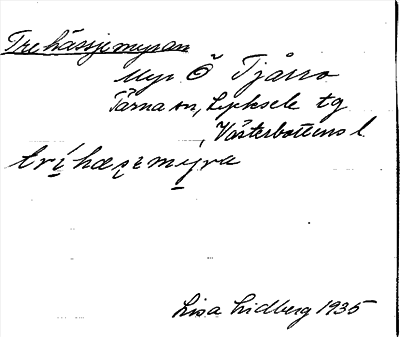 Trehässjemyran
Myr Ö Tjårro
Tärna sn, Lycksele tg
, Västerbottens l.
tríhæʂemyra
Lisa Lidberg 1935